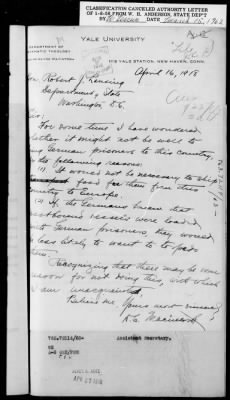 CLASSIFICATION CANCELED AUTHORITY LETTER
OF 1-8-58 FROM W. H. ANDERSON, STATE DEP'T
BY DATE March 15, 1962
YALE UNIVERSITY
DEPARTMENT OF
THEOLOGY
YALE STATION, NEW HAVEN, CONN.
April 16, 1918
Hon. Robert Lansing
Department of State
Washington D.C.
Sir:
For some time I have wondered
whether it might not be well to
bring German prisoners to this country,
for the following reasons.
(1) It would not be necessary to ship
food for them from this
country to Europe.
(2) If the Germans knew that
vessels were loaded
with German prisoners, they would
be less likely to want to
them
Recognizing that there may be some
reason for not doing this, with which
I am unacquainted,
Believe me Yours most sincerely
Assistant Secretary.